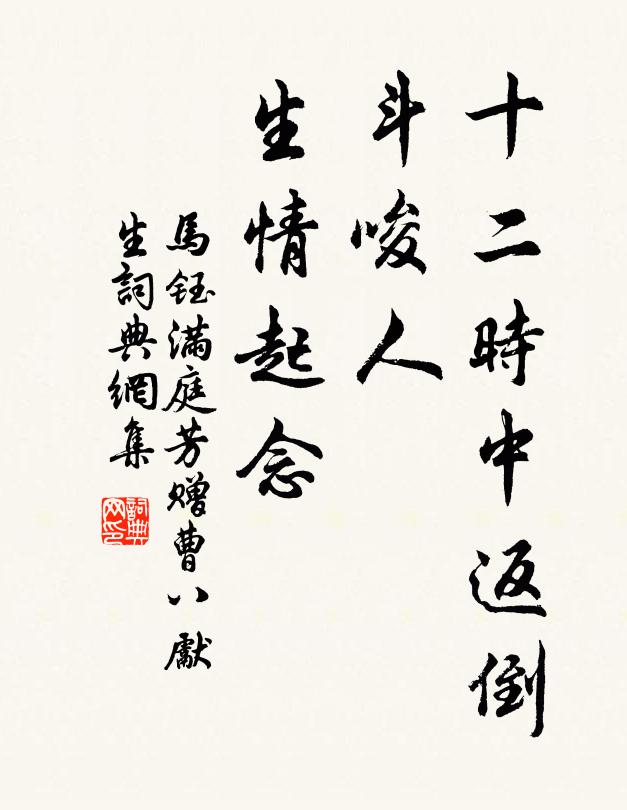 十二時中返倒
斗唆人
生情起念
馬鈺滿庭芳赠曹八獻
生詞典網集
詞典
网印